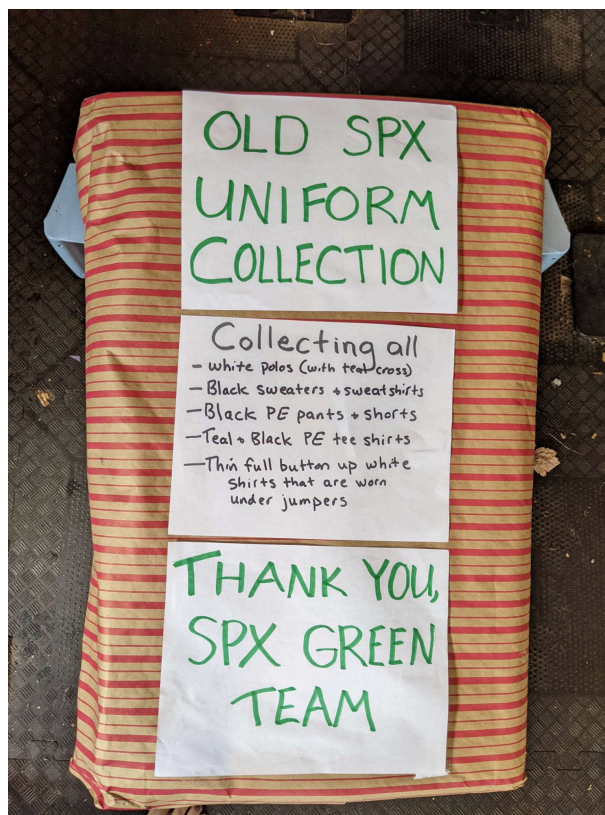 OLD SPX
UNIFORM
COLLECTION
Collecting all
- White Polos (with teal cross)
- Black sweaters + sweatshirts
- Black PE pants + shorts
- Teal + Black PE tee shirts
- Thin full button up white
shirts that are worn
under jumpers
THANK YOU,
SPX GREEN
TEAM